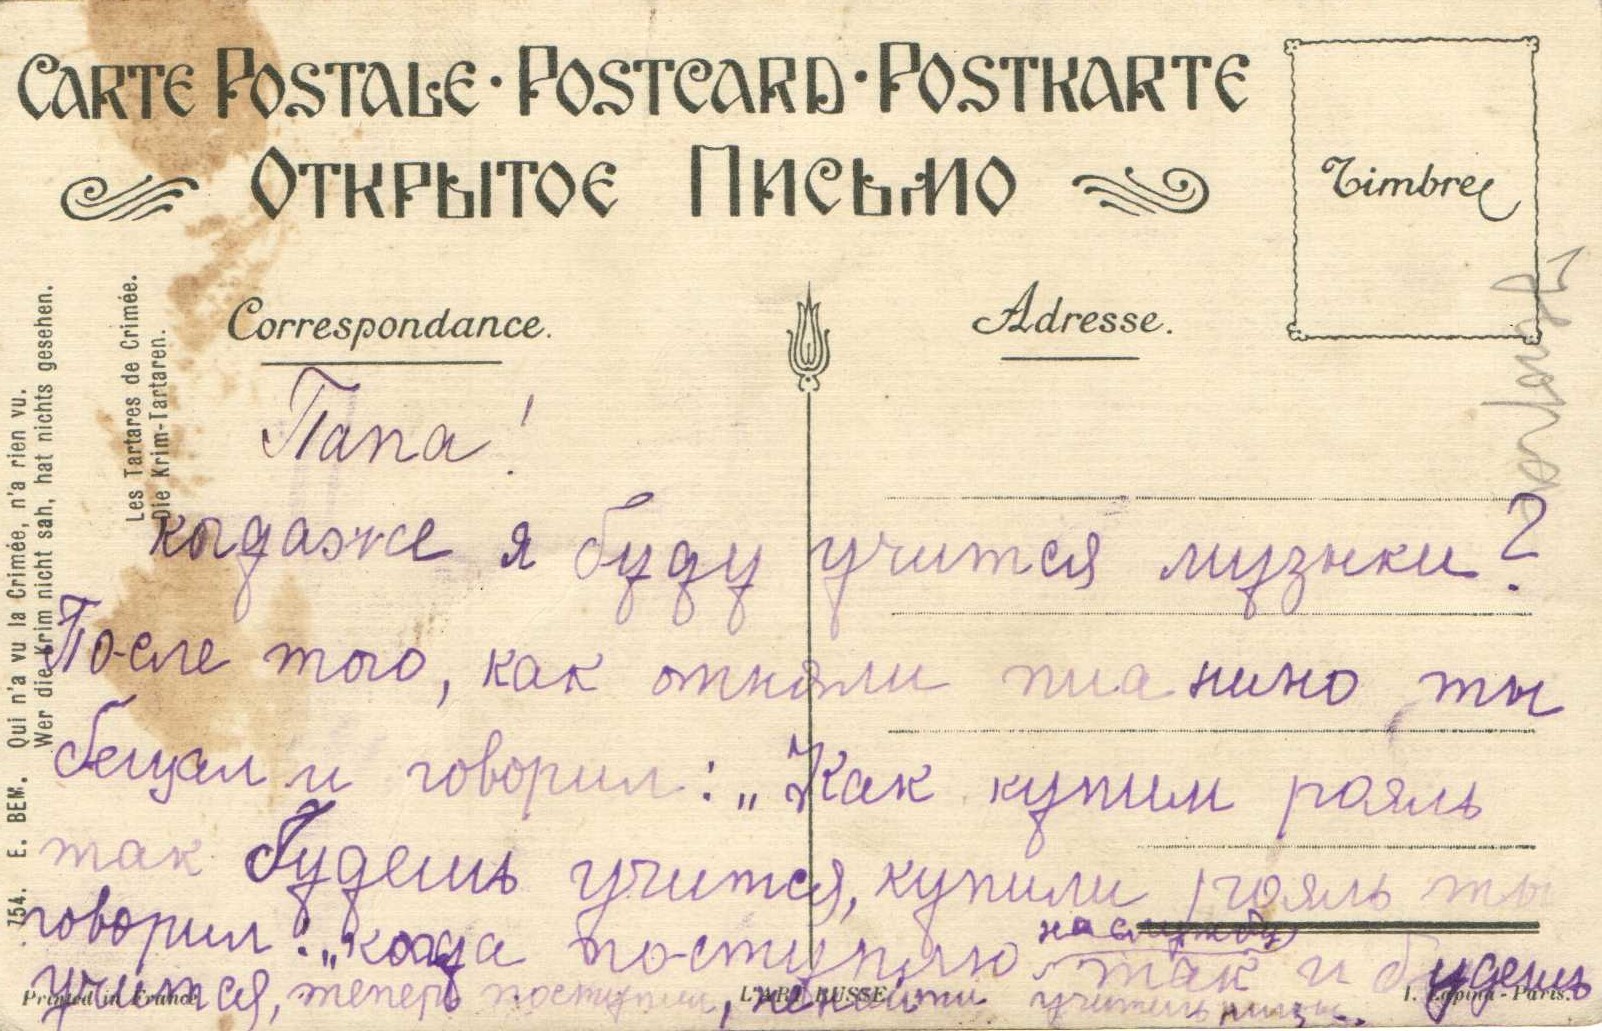 CARTE POSTALE · POSTCARD · POSTKARTE
ОТКРЫТОЕ ПИСЬМО
Timbre
Correspondance.
Adresse.
Les Tartares de Crimée.
Die Krim-Tartaren.
754. E. BEM. Qui n'a vu la Crimée, n'a rien vu.
Wer die Krim nicht sah, hat nichts gesehen.
Папа!
когдаже я буду учится музыки?
После того, как отняли пианино ты
бещал и говорил: „Как купим рояль
так будешь учится, купили рояль ты
говорил: „когда поступлю на службу так и будешь
учится, теперь поступил,
Printed in France
L'ART RUSSE
I. Lapina - Paris.